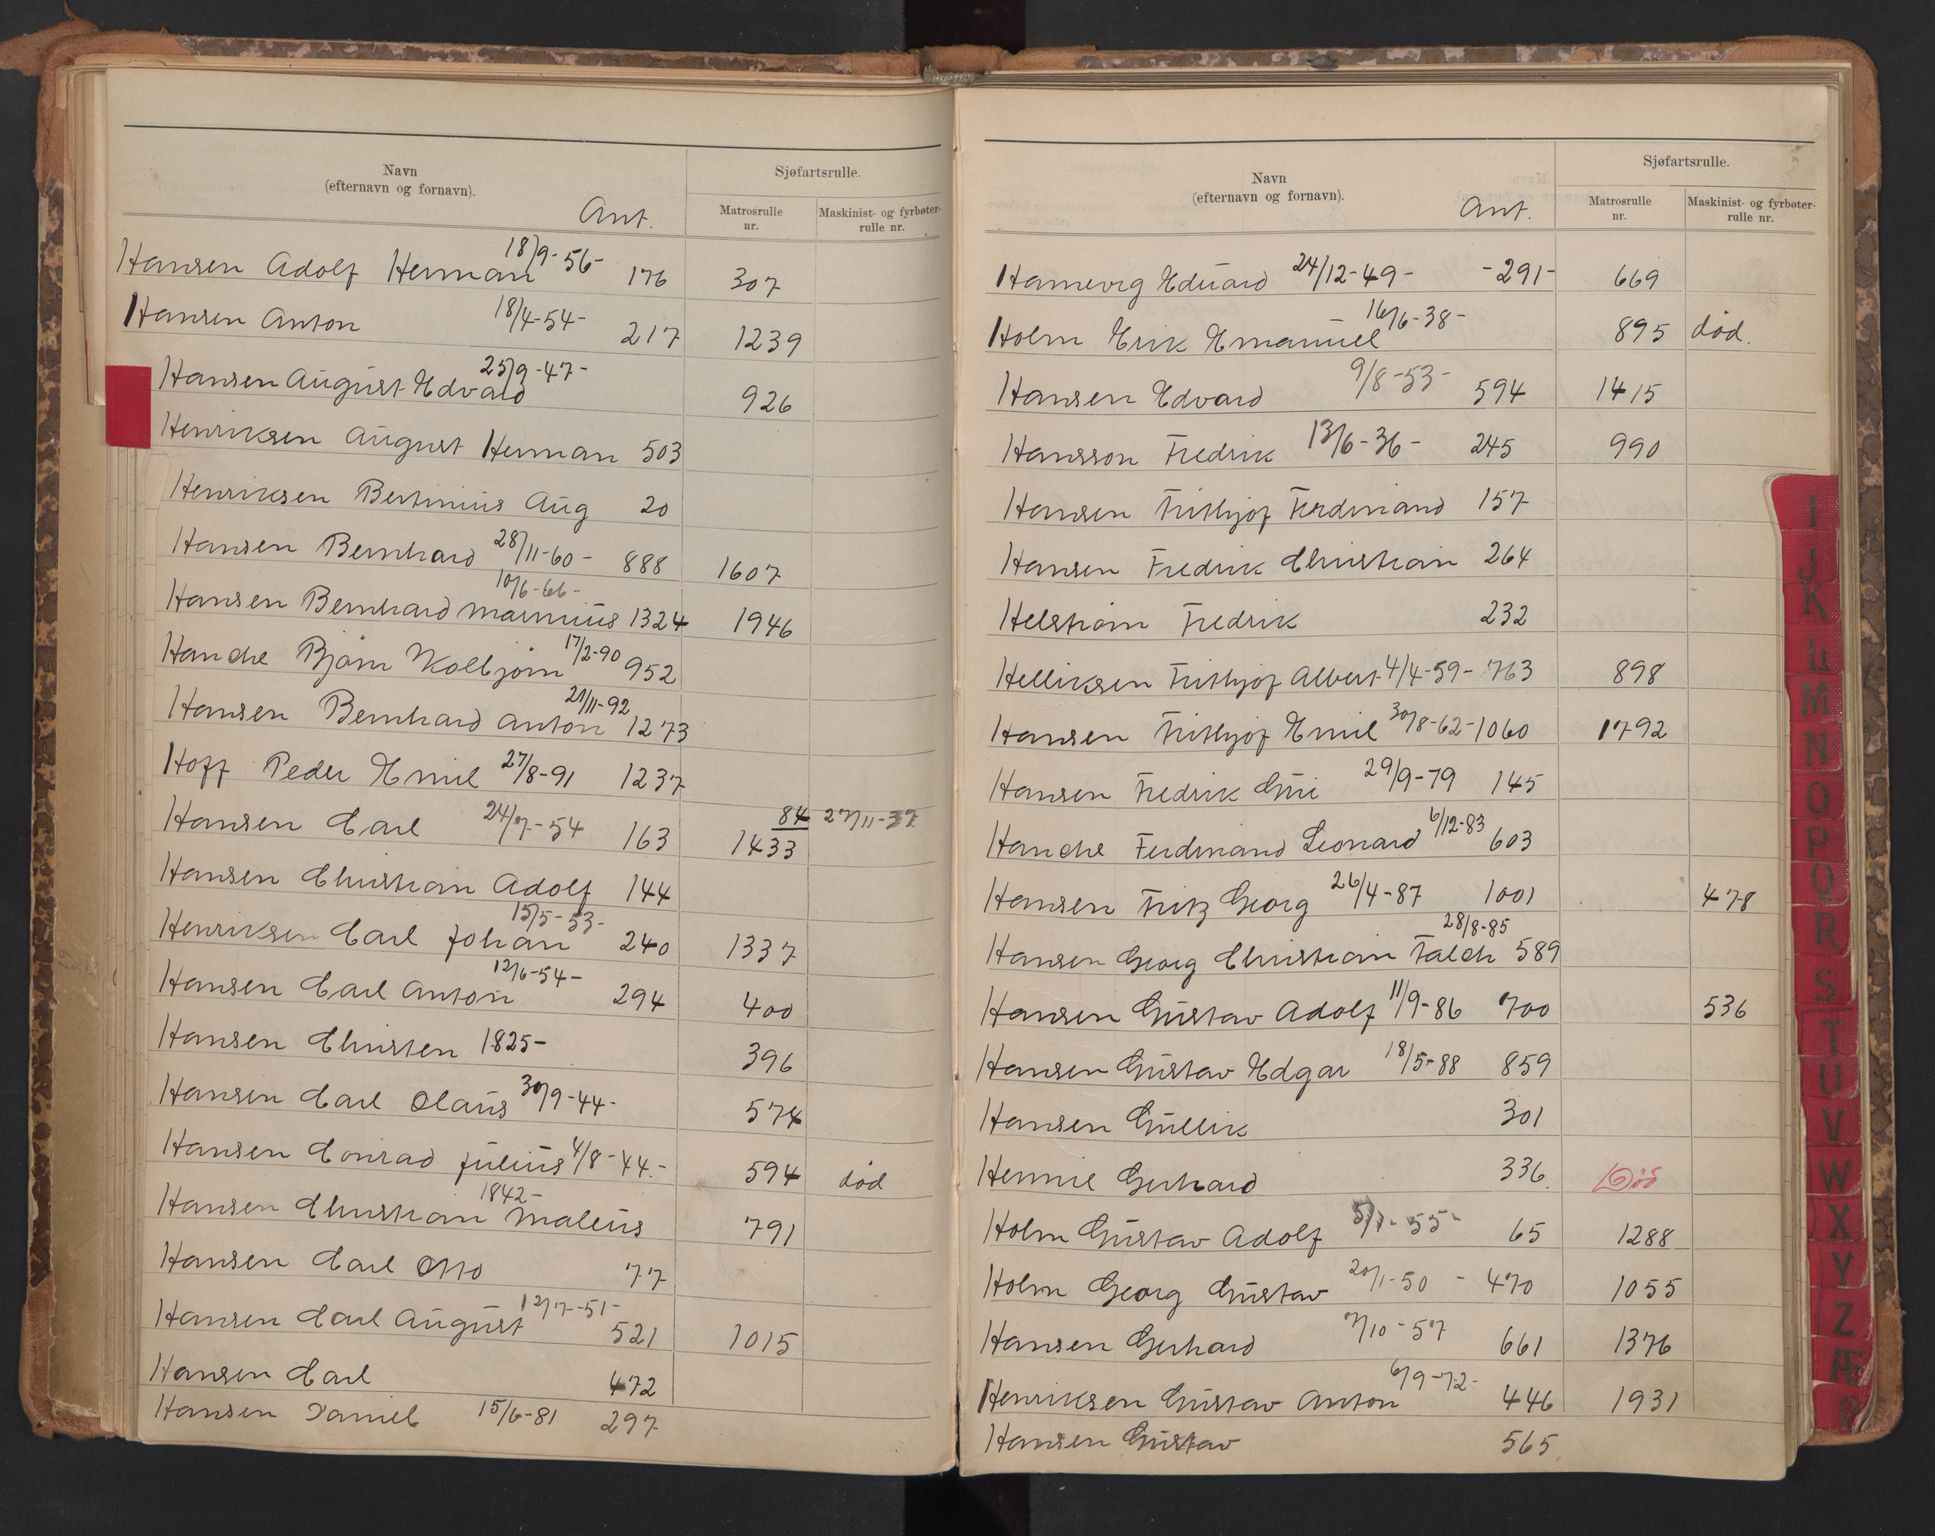 Navn
(efternavn og fornavn).
Ant.
Sjøfartsrulle.
Matrosrulle nr.
Maskinist- og fyrbøter-rulle nr.
Hansen Adolf Herman 18/9-56- 176 307
Hansen Anton 18/4-54- 217 1239
Hansen August Edvard 25/9-47- 926
Henriksen August Herman 503
Henriksen Bertinius Aug 20
Hansen Bernhard 28/11-60- 888 1607
Hansen Bernhard Marinius 10/6-66- 1324 1946
Hanche Bjørn Kolbjørn 17/2-90 952
Hansen Bernhard Anton 21/11-92 1273
Hoff Peder Emil 27/8-91 1237
Hansen Carl 24/7-54 163 84 1433 27/11-37.
Hansen Christian Adolf 144
Henriksen Carl Johan 15/5-53- 240 1337
Hansen Carl Anton 12/6-54- 294 400
Hansen Christen 1825- 396
Hansen Carl Olaus 30/9-44- 574
Hansen Conrad Julius 4/8-44.- 594 død
Hansen Christian Malius 1842- 791
Hansen Carl Otto 77
Hansen Carl August 12/7-51- 521 1015
Hansen Carl 472
Hansen Daniel 15/6-81 297
Navn
(efternavn og fornavn).
Ant.
Sjøfartsrulle.
Matrosrulle nr.
Maskinist- og fyrbøter-rulle nr.
Hamevig Eduard 24/12-49- -291- 669
Holm Erik Emanuel 16/6-38- 895 død.
Hansen Edvard 9/8-53- 594 1415
Hansson Fredrik 13/6-36- 245 990
Hansen Frithjof Ferdinand 157
Hansen Fredrik Christian 264
Helstrøm Fredrik 232
Helliksen Frithjof Albert 4/4-59- 763 898
Hansen Frithjof Emil 30/8-62- 1060 1792
Hansen Fredrik Gui 29/9-79 145
Hanche Ferdinand Leonard 6/12-83 603
Hansen Fritz Georg 26/4-87 1001 478
Hansen Georg Christian Falch 28/8-85 589
Hansen Gustav Adolf 11/9-86 700 536
Hansen Gustav Edgar 18/5-88 859
Hansen Gullik 301
Hennie Gerhard 336. Død
Holm Gustav Adolf 65 1288
Holm Georg Gustav 20/1-50 - 470 1055
Hansen Gerhard 7/10-57 661 1376
Henriksen Gustav Anton 6/9-72- 446 1931
Hansen Gustav 565
I
J
K
L
M
N
O
P
Q
R
S
T
U
V
W
X
Y
Z
Æ
Ø